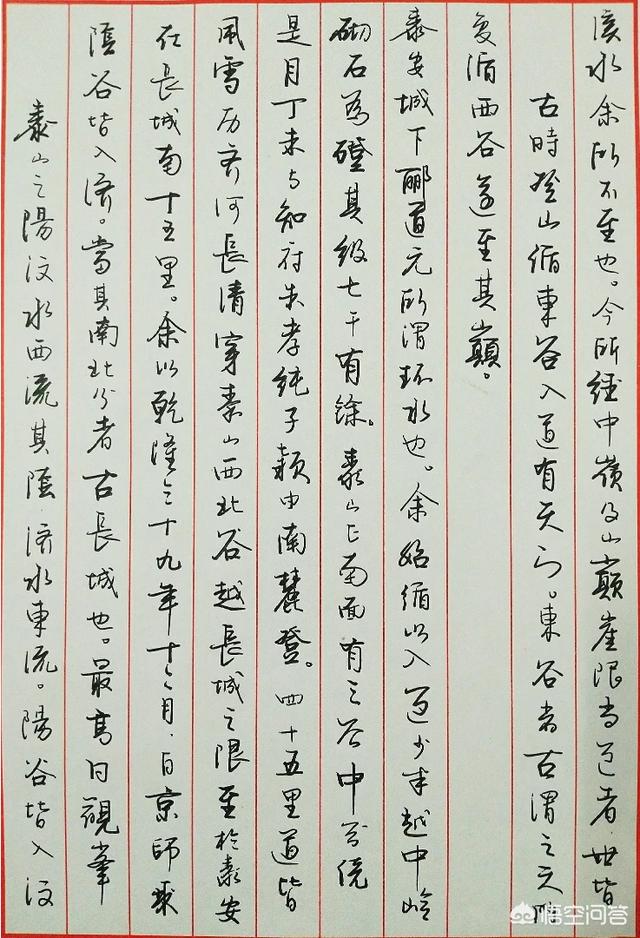 泰山之陽汶水西流其陰濟水東流。陽谷皆入汶
陰谷皆入济。當其南北分者古長城也。最高日觀峯
在長城南十五里。余以乾隆三十九年十二月,自京師乘
風雪历齐河長清穿泰山西北谷越長城之限至於泰安
是月丁未与知府朱孝純子颍由南麓登。四十五里道皆
砌石為磴其级七千有馀。泰山正南面有三谷中谷绕
泰安城下酈道元所谓环水也。余始循以入道少半越中岭
复循西谷遂至其巔。
古時登山循東谷入道有天门。東谷者古谓之天門
溪水余所不至也。今所经中嶺及山巔崖限当道者世皆
悟空问答